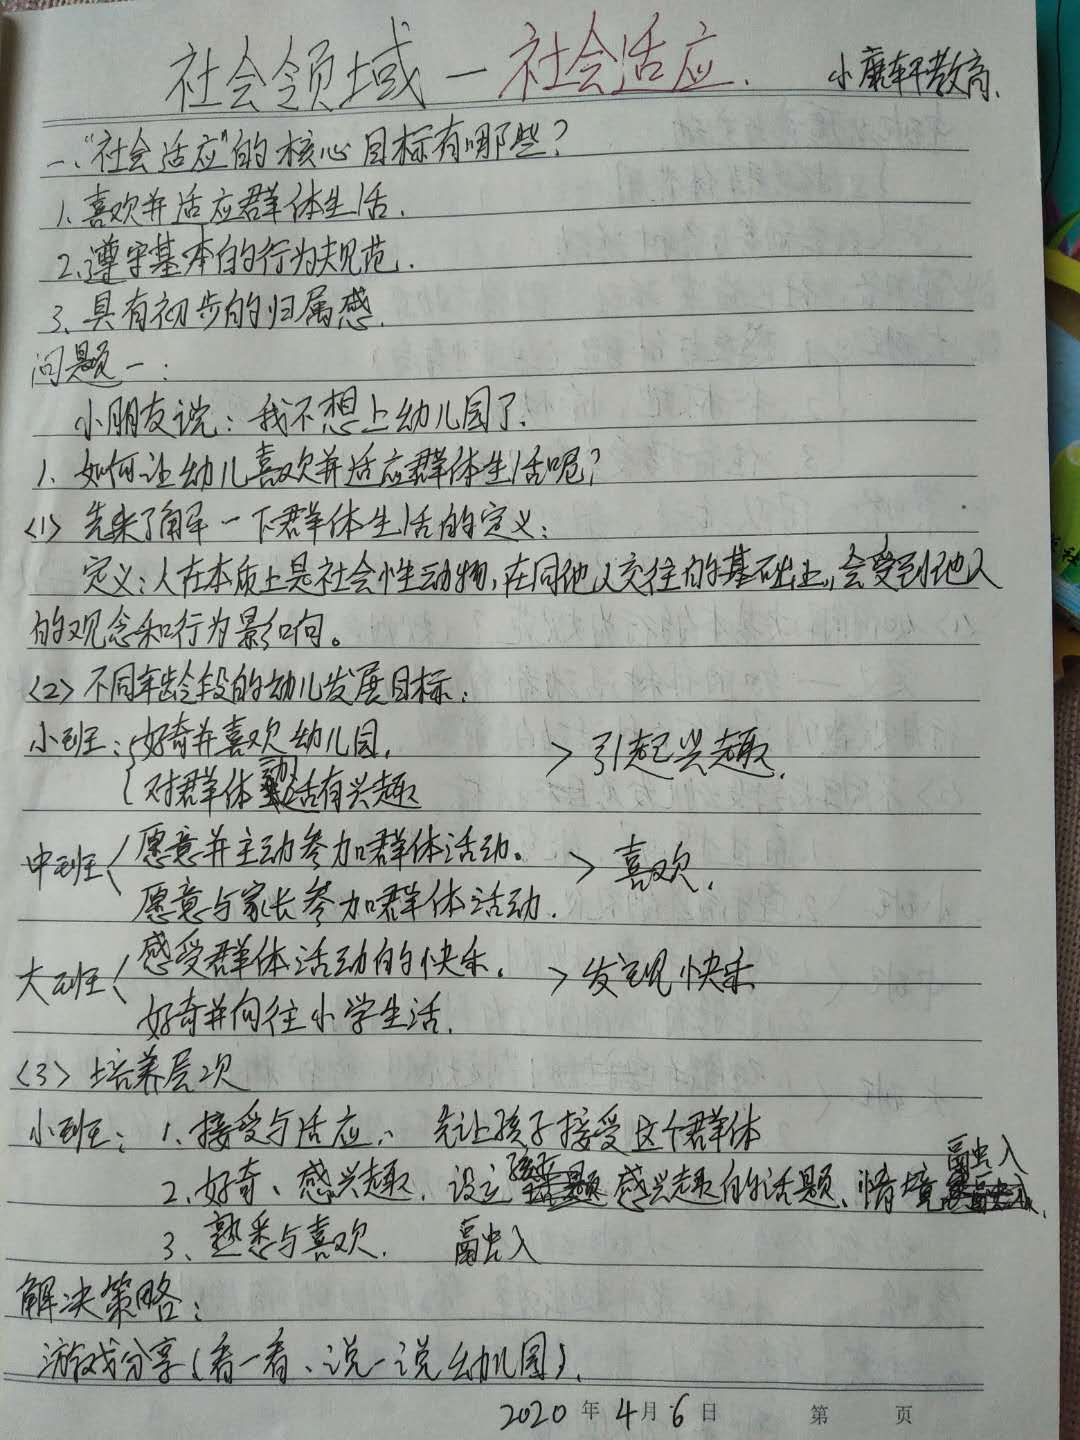 社会领域－社会适应.
小康轩教育.
一、“社会适应”的核心目标有哪些？
1、喜欢并适应群体生活.
2、遵守基本的行为规范.
3、具有初步的归属感.
问题一：
小朋友说：我不想上幼儿园了.
1、如何让幼儿喜欢并适应群体生活呢？
<1> 先来了解一下群体生活的定义：
定义：人在本质上是社会性动物，在同他人交往的基础上，会受到他人
的观念和行为影响。
<2> 不同年龄段的幼儿发展目标：
小班：好奇并喜欢幼儿园.
对群体活有兴趣
> 引起兴趣.
中班 愿意并主动参加群体活动。
愿意与家长参加群体活动.
> 喜欢.
大班 感受群体活动的快乐.
好奇并向往小学生活.
> 发现快乐
<3> 培养层次
小班：1、接受与适应、 先让孩子接受这个群体
2、好奇、感兴趣. 设立孩子感兴趣的话题、情境融入.
3、熟悉与喜欢. 融入
解决策略：
游戏分享(看一看、说一说幼儿园).
2020年4月6日 第 页